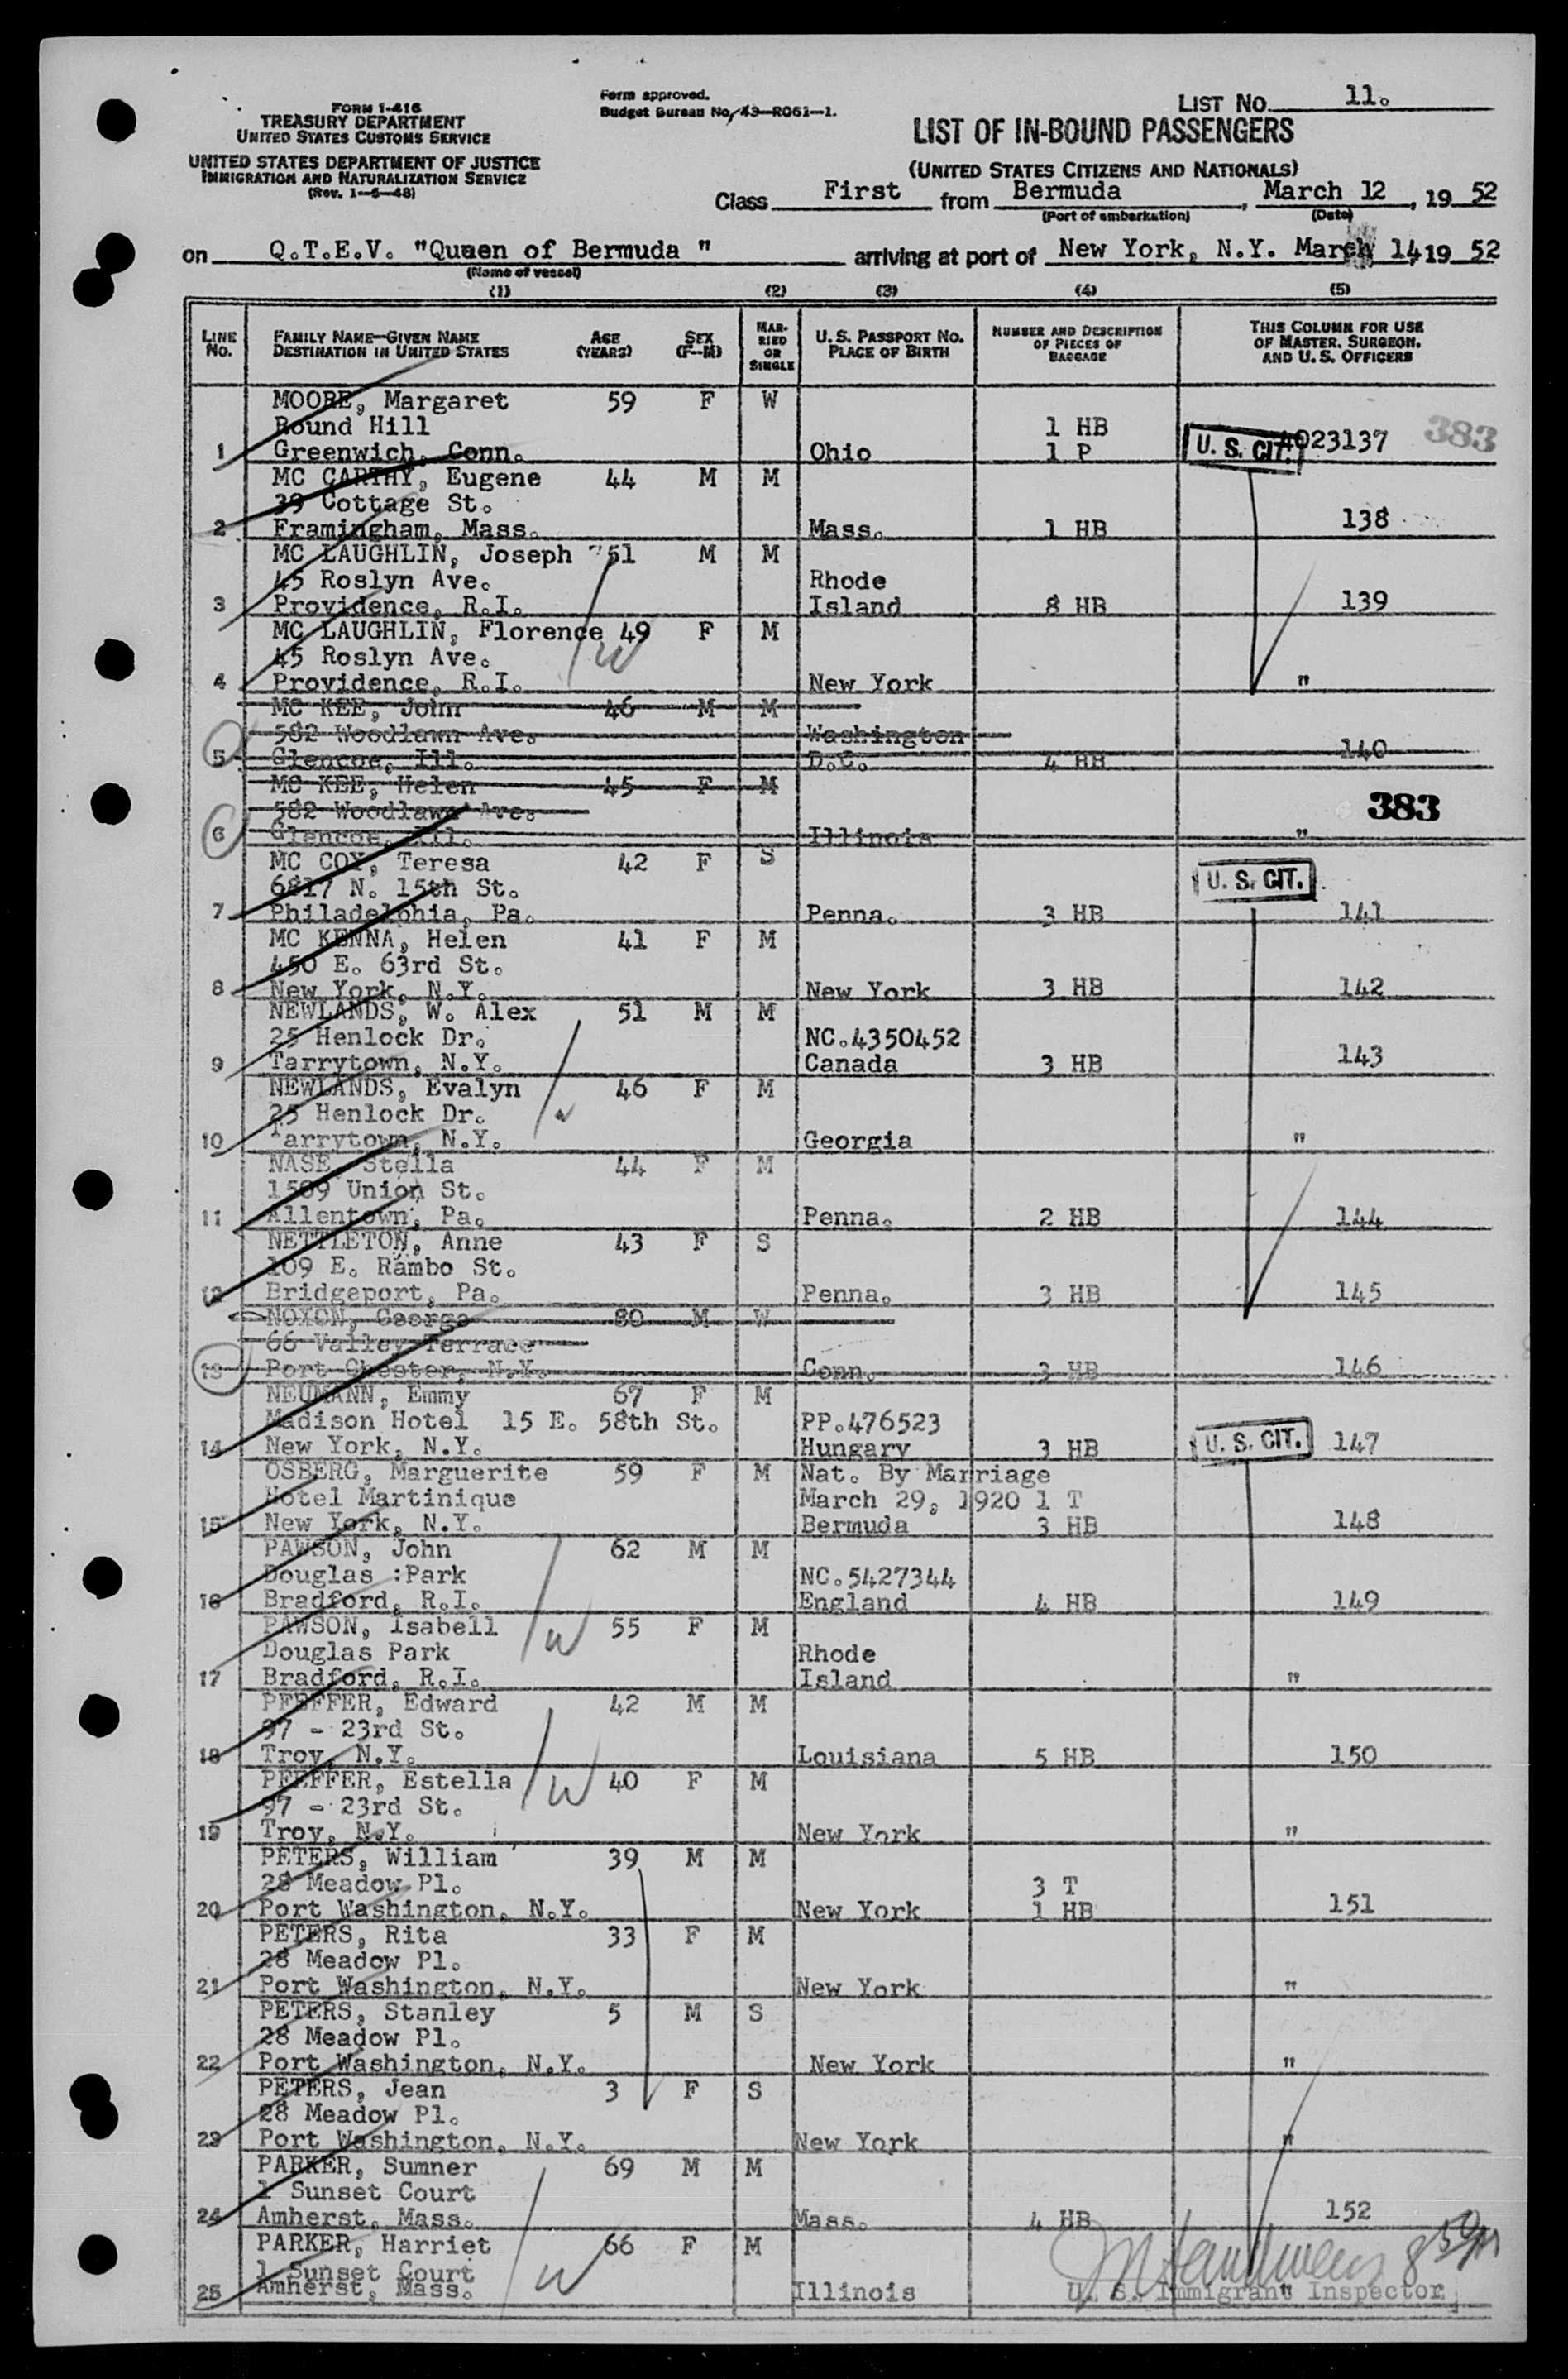 FORM I-416
TREASURY DEPARTMENT
UNITED STATES CUSTOMS SERVICE
UNITED STATES DEPARTMENT OF JUSTICE
IMMIGRATION AND NATURALIZATION SERVICE
(Rev. 1-5-48)
Form approved.
Budget Bureau No. 43-R061-1.
LIST NO. 11.
LIST OF IN-BOUND PASSENGERS
(UNITED STATES CITIZENS AND NATIONALS)
Class First from Bermuda, March 12, 19 52
(Port of embarkation) (Date)
on Q.T.E.V. "Queen of Bermuda " arriving at port of New York, N.Y. March 14, 19 52
(Name of vessel)
(1) (2) (3) (4) (5)
LINE NO. FAMILY NAME—GIVEN NAME DESTINATION IN UNITED STATES AGE (YEARS) SEX (F-M) MARRIED OR SINGLE U. S. PASSPORT NO. PLACE OF BIRTH NUMBER AND DESCRIPTION OF PIECES OF BAGGAGE THIS COLUMN FOR USE OF MASTER, SURGEON, AND U. S. OFFICERS
MOORE, Margaret 59 F W
Round Hill 1 HB
1 Greenwich, Conn. Ohio 1 P U. S. CIT. 4023137 383
MC CARTHY, Eugene 44 M M
39 Cottage St.
2 Framingham, Mass. Mass. 1 HB 138
MC LAUGHLIN, Joseph 51 M M
45 Roslyn Ave. Rhode
3 Providence, R.I. Island 8 HB 139
MC LAUGHLIN, Florence 49 F M
45 Roslyn Ave. W
4 Providence, R.I. New York "
MC KEE, John 46 M M
582 Woodlawn Ave. Washington
5 Glencoe, Ill. D.C. 4 HB 140
MC KEE, Helen 45 F M
582 Woodlawn Ave. 383
6 Glencoe, Ill. Illinois "
MC COY, Teresa 42 F S
6817 N. 15th St. U. S. CIT.
7 Philadelphia, Pa. Penna. 3 HB 141
MC KENNA, Helen 41 F M
450 E. 63rd St.
8 New York, N.Y. New York 3 HB 142
NEWLANDS, W. Alex 51 M M
25 Henlock Dr. NC.4350452
9 Tarrytown, N.Y. Canada 3 HB 143
NEWLANDS, Evalyn 46 F M
25 Henlock Dr.
10 Tarrytown, N.Y. Georgia "
NASE, Stella 44 F M
1509 Union St.
11 Allentown, Pa. Penna. 2 HB 144
NETTLETON, Anne 43 F S
109 E. Rambo St.
12 Bridgeport, Pa. Penna. 3 HB 145
NOXON, George 80 M W
66 Valley Terrace
13 Port Chester, N.Y. Conn. 3 HB 146
NEUMANN, Emmy 67 F M
Madison Hotel 15 E. 58th St. PP.476523
14 New York, N.Y. Hungary 3 HB U. S. CIT. 147
OSBERG, Marguerite 59 F M Nat. By Marriage
Hotel Martinique March 29, 1920 1 T
15 New York, N.Y. Bermuda 3 HB 148
PAWSON, John 62 M M
Douglas :Park NC.5427344
16 Bradford, R.I. England 4 HB 149
PAWSON, Isabell W 55 F M
Douglas Park Rhode
17 Bradford, R.I. Island "
PFEFFER, Edward 42 M M
97 - 23rd St.
18 Troy, N.Y. Louisiana 5 HB 150
PFEFFER, Estella W 40 F M
97 - 23rd St.
19 Troy, N.Y. New York "
PETERS, William 39 M M
28 Meadow Pl. 3 T
20 Port Washington, N.Y. New York 1 HB 151
PETERS, Rita 33 F M
28 Meadow Pl.
21 Port Washington, N.Y. New York "
PETERS, Stanley 5 M S
28 Meadow Pl.
22 Port Washington, N.Y. New York "
PETERS, Jean 3 F S
28 Meadow Pl.
23 Port Washington, N.Y. New York "
PARKER, Sumner 69 M M
1 Sunset Court
24 Amherst, Mass. Mass. 4 HB 152
PARKER, Harriet 66 F M
1 Sunset Court W
25 Amherst, Mass. Illinois "
U. S. Immigrant Inspector